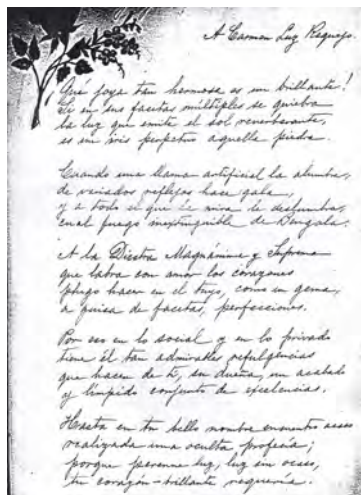 A Carmen Luz Requejo.
¡Qué joya tan hermosa es un brillante!
Si en sus facetas múltiples se quiebra
la luz que emite el sol reverberante,
es un iris perpetuo aquella piedra.
Cuando una llama artificial la alumbra,
de variados reflejos hace gala,
y a todo el que la mira le deslumbra,
cual fuego inextinguible de Bengala.
A la Diestra Magnánima y Suprema
que labra con amor los corazones
plugo hacer en el tuyo, como en gema,
a guisa de facetas, perfecciones.
Por eso en lo social y en lo privado
tiene él tan admirables refulgencias
que hacen de ti, su dueña, un acabado
y límpido conjunto de excelencias.
Hasta en tu bello nombre encuentro acaso
realizada una oculta profecía;
porque perenne luz, luz sin ocaso,
tu corazón-brillante requería.